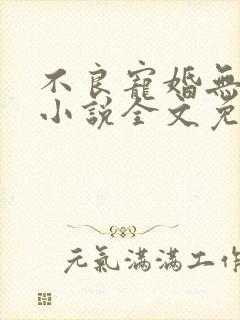 不良寵婚無
小說全文免
元氣滿滿工作